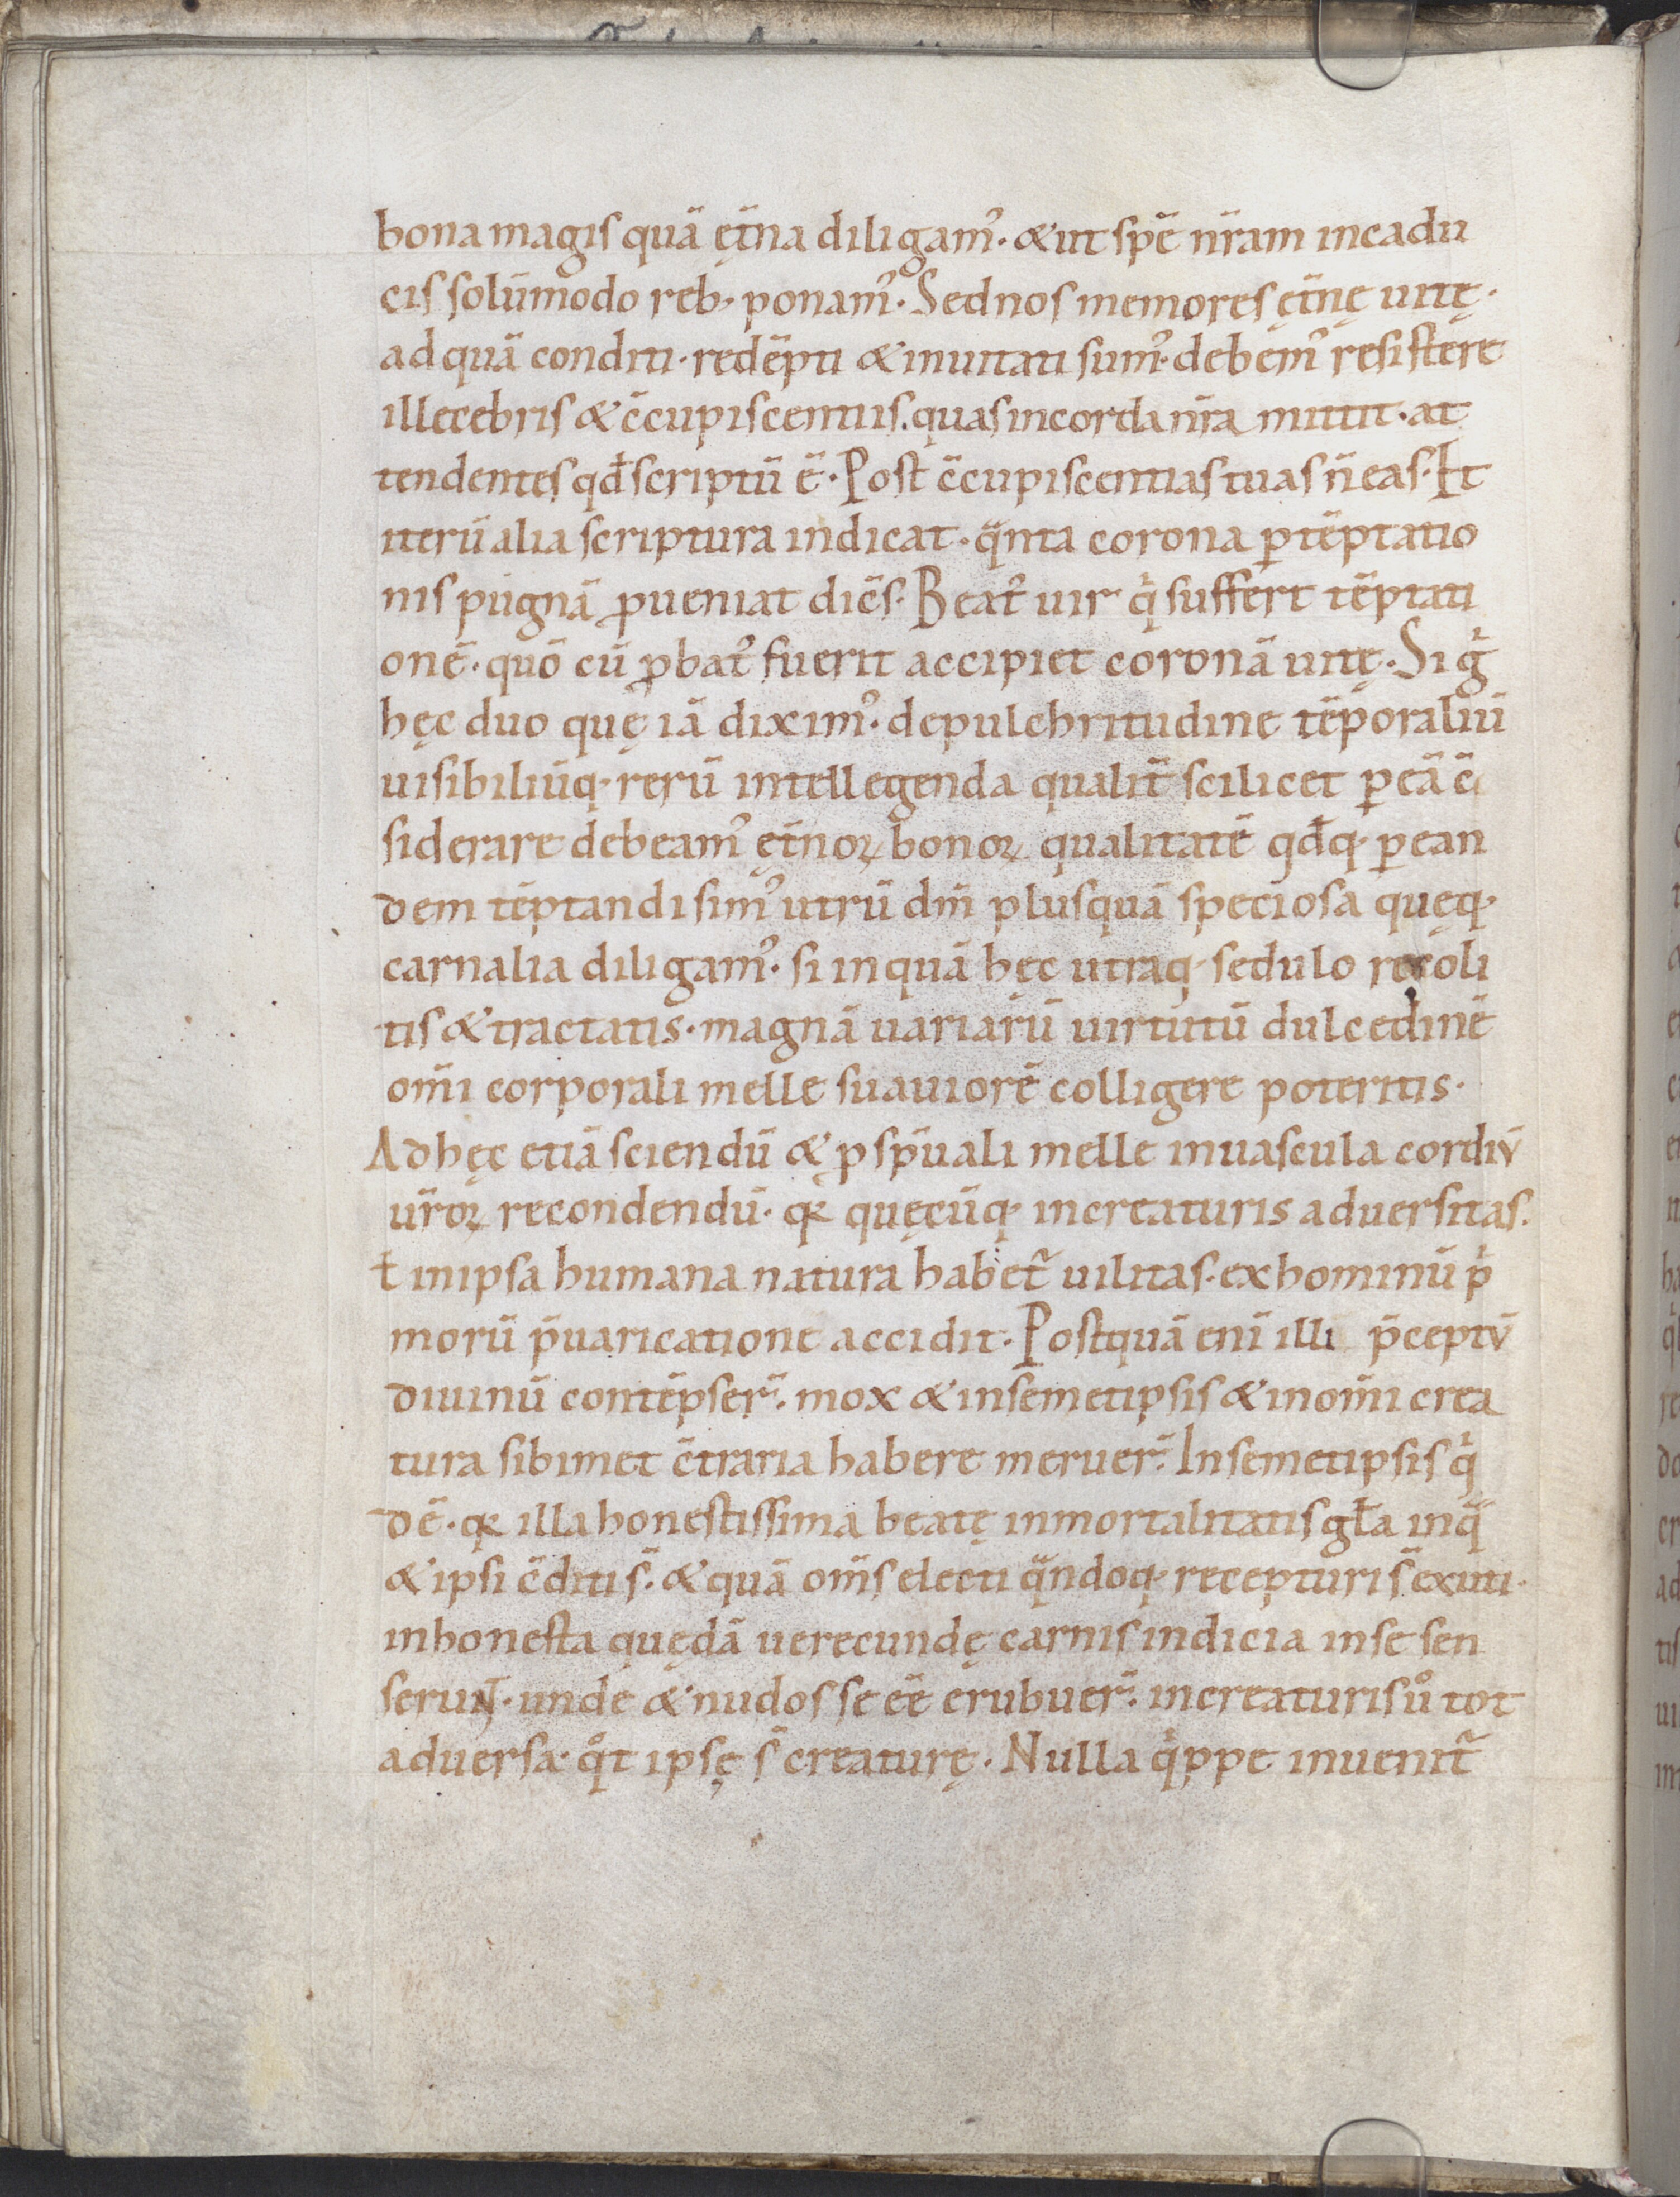 bona magis quā ęt̄na diligam᾿· & ut spē nr̄am in cadu
cis solūmodo reb; ponam᾿· Sed nos memores ęt̄nę uitę·
ad quā conditi· redēpti & inuitati sum᾿· debem᾿ resistere
illecebris & c̄cupiscentiis. quas in corda nr̄a mittit· at
tendentes qđ scriptū ē· Post c̄cupiscentias tuas n̄ eas· Et
iterū alia scriptura indicat· qͣnta corona ꝑ tēptatio
nis pugnā ꝓueniat dicēs· Beat᾿ uir qͥ suffert tēptati
onē· quō cū ꝓbat᾿ fuerit accipiet coronā uitę· Si gͥ
hęc duo quę iā dixim᾿· de pulchritudine tēporaliū
uisibiliūq; rerū intellegenda qualit̄ scilicet ꝑ eā c̄
siderare debeam᾿ ęt̄noꝝ bonoꝝ qualitatē qđq; ꝑ ean
dem tēptandi sim᾿ utrū dm̄ plusquā speciosa quęq;
carnalia diligam᾿· si inquā hęc utraq; sedulo recoli
tis & tractatis· magnā uariarū uirtutū dulcedinē
om̄i corporali melle suauiorē colligere poteritis·
Ad hęc etiā sciendū & ꝓ sp̄uali melle in uascula cordiū
ur̄oꝝ recondendū· qꝛ quęcūq; in creaturis aduersitas·
ł in ipsa humana natura habet᷑ uilitas· ex hominū pͥ
morū p̄uaricatione accidit· Postquā enī illi p̄ceptū
diuinū contēpser̄· mox & in semetipsis & in om̄i crea
tura sibimet c̄traria habere meruer̄· In semetipsis qͥ
dē· qꝛ illa honestissima beatę inmortalitatis gła in qͣ
& ipsi c̄diti s̄· & quā om̄s electi qͣndoq; recepturi s̄ exuti·
inhonesta quędā uerecundę carnis indicia in se sen
serunt· unde & nudos se ēe erubuer̄· in creaturis uͦ tot
aduersa· qͦt ipsę s̄ creaturę· Nulla qͥppe inuenit᷑